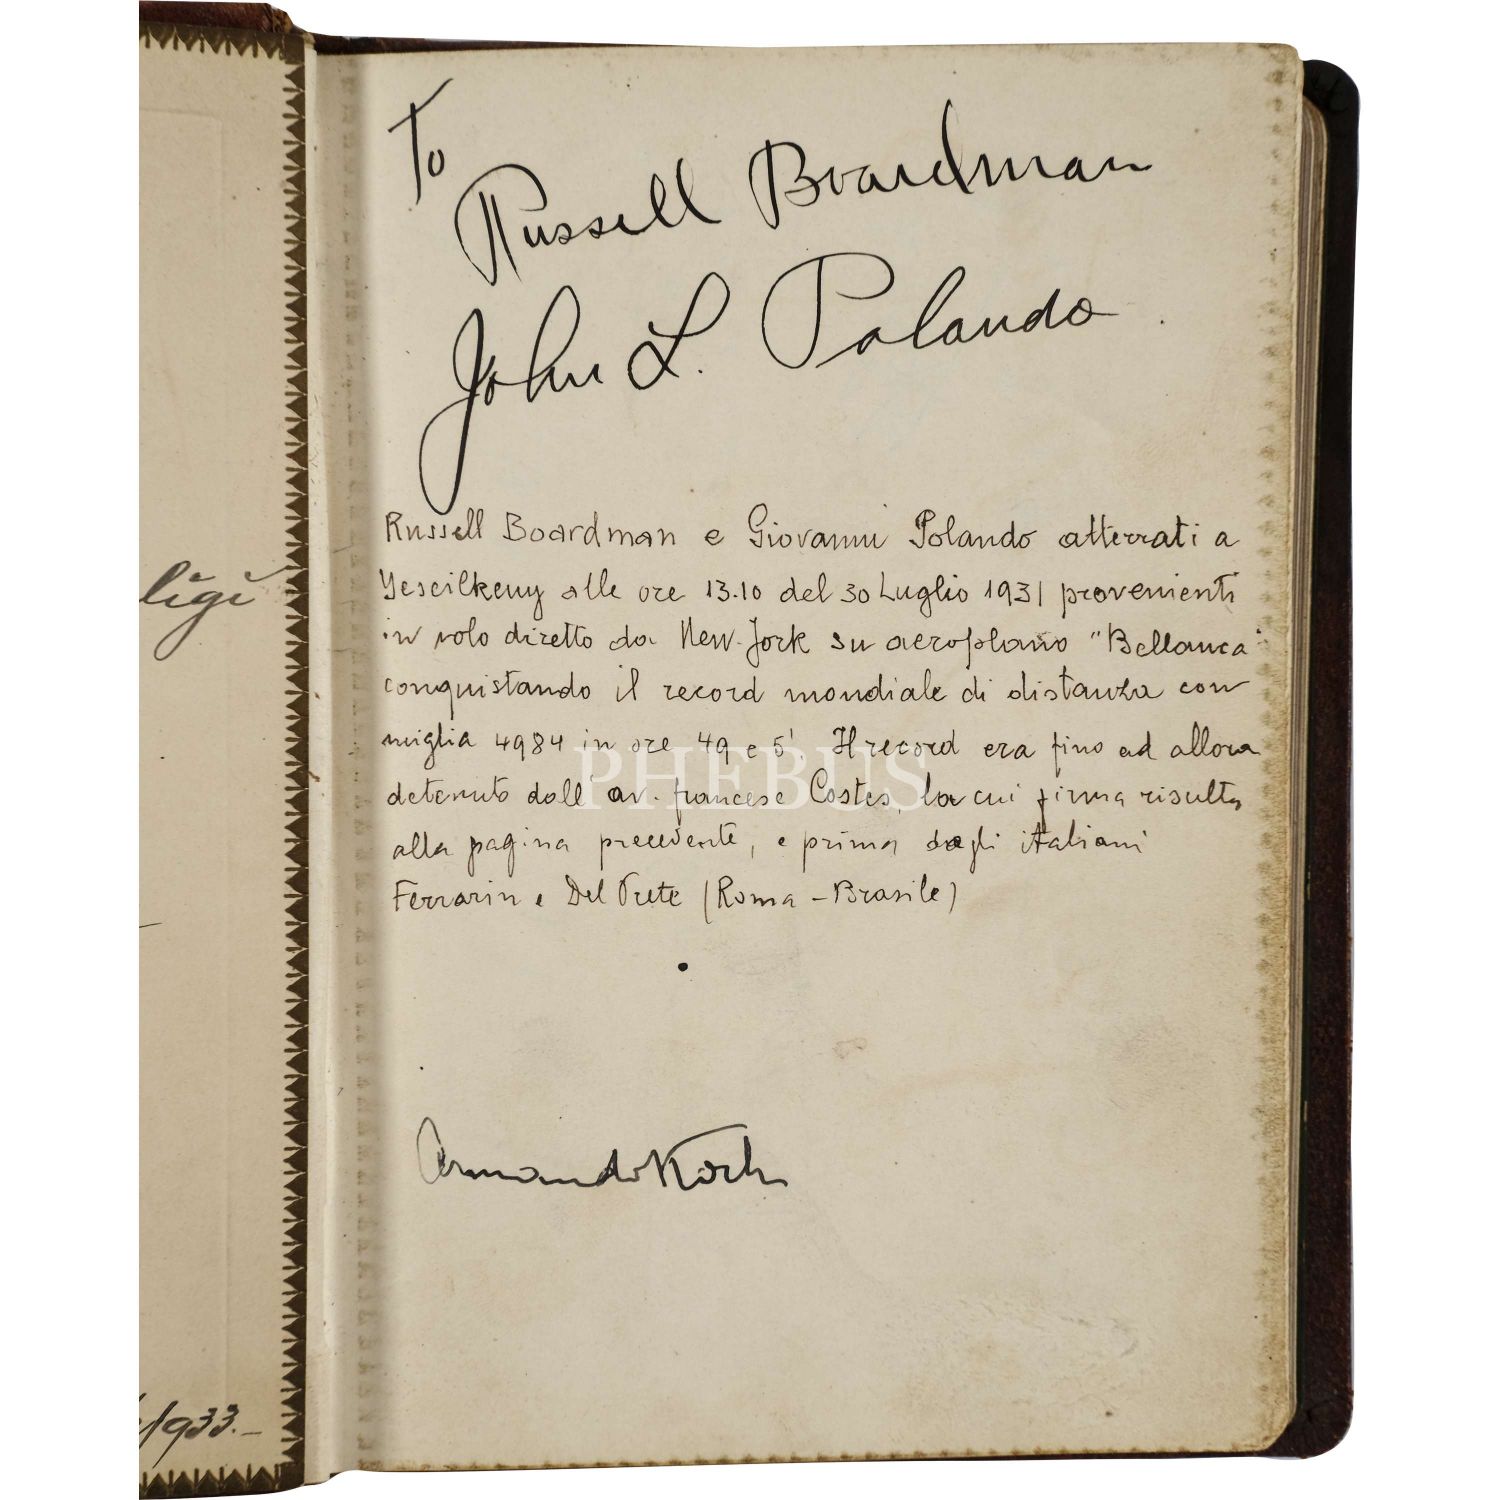 To
Russell Boardman
John L. Polando
Russell Boardman e Giovanni Polando atterrati a
Yescilkeuy alle ore 13.10 del 30 Luglio 1931 provenienti
in volo diretto da New-Jork su aeroplano "Bellanca"
conquistando il record mondiale di distanza con
miglia 4984 in ore 49 e 5'. Il record era fino ad allora
detenuto dall' av. francese Costes, la cui firma risulta
alla pagina precedente, e prima dagli italiani
Ferrarin e Del Prete (Roma - Brasile)
Armando Koch
PHEBUS
ligi
/1933.-